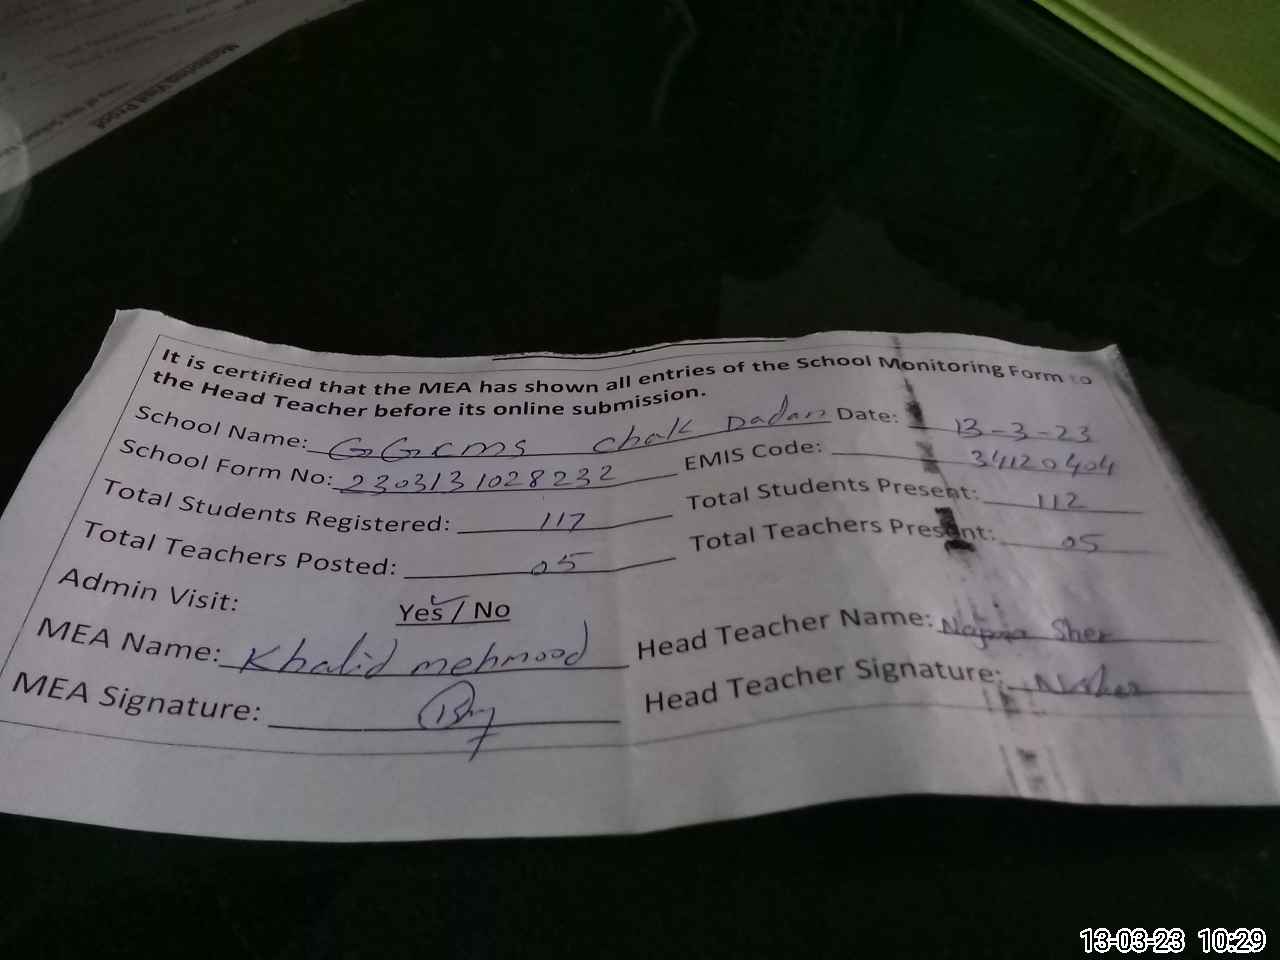 Monitoring Visit Proof
It is certified that the MEA has shown all entries of the School Monitoring Form to
the Head Teacher before its online submission.
School Name: GGCMS Chak Dadan Date: 13-3-23
School Form No: 2303131028232 EMIS Code: 34120404
Total Students Registered: 117 Total Students Present: 112
Total Teachers Posted: 05 Total Teachers Present: 05
Admin Visit: Yes / No
MEA Name: Khalid mehmood Head Teacher Name: Najma Sher
MEA Signature: Head Teacher Signature: N.sher
13-03-23 10:29